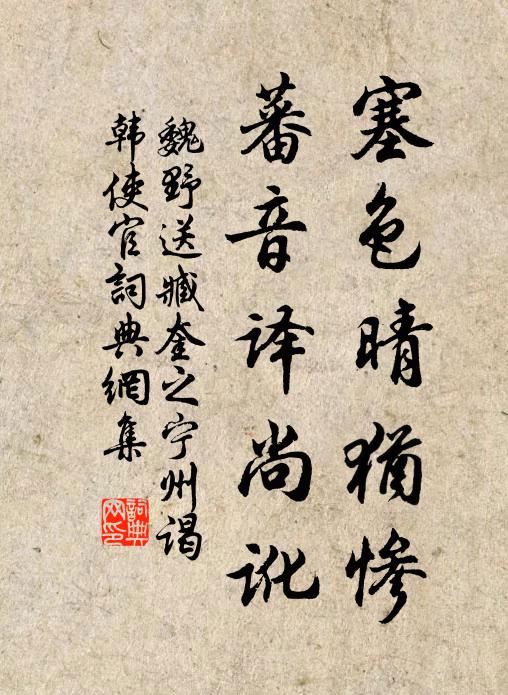 塞色晴犹惨
蕃音译尚讹
魏野送臧奎之宁州谒
韩使官詞典網集
詞典网印